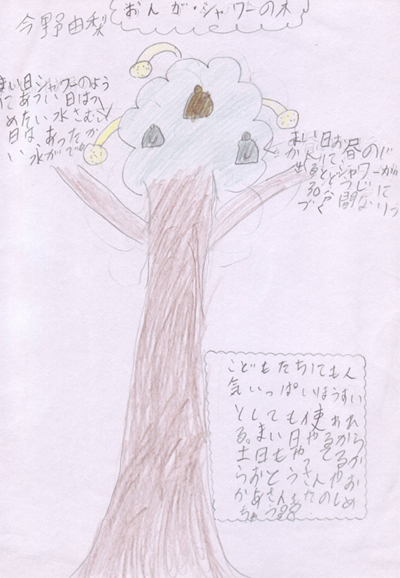 おんが・シャワーの木
今野由梨
まい日シャワーのよう
にあつい日はつ
めたい水さむい
日は、あったか
い水がで
まい日お昼の
シャワーが
30分間なりつ
づく
こどもたちにも人
気いっぱいほうすい
としても使われ
る。まい日やるから
土日もやってるか
らおとうさんやお
かあさんもたのしめ
ちゃう